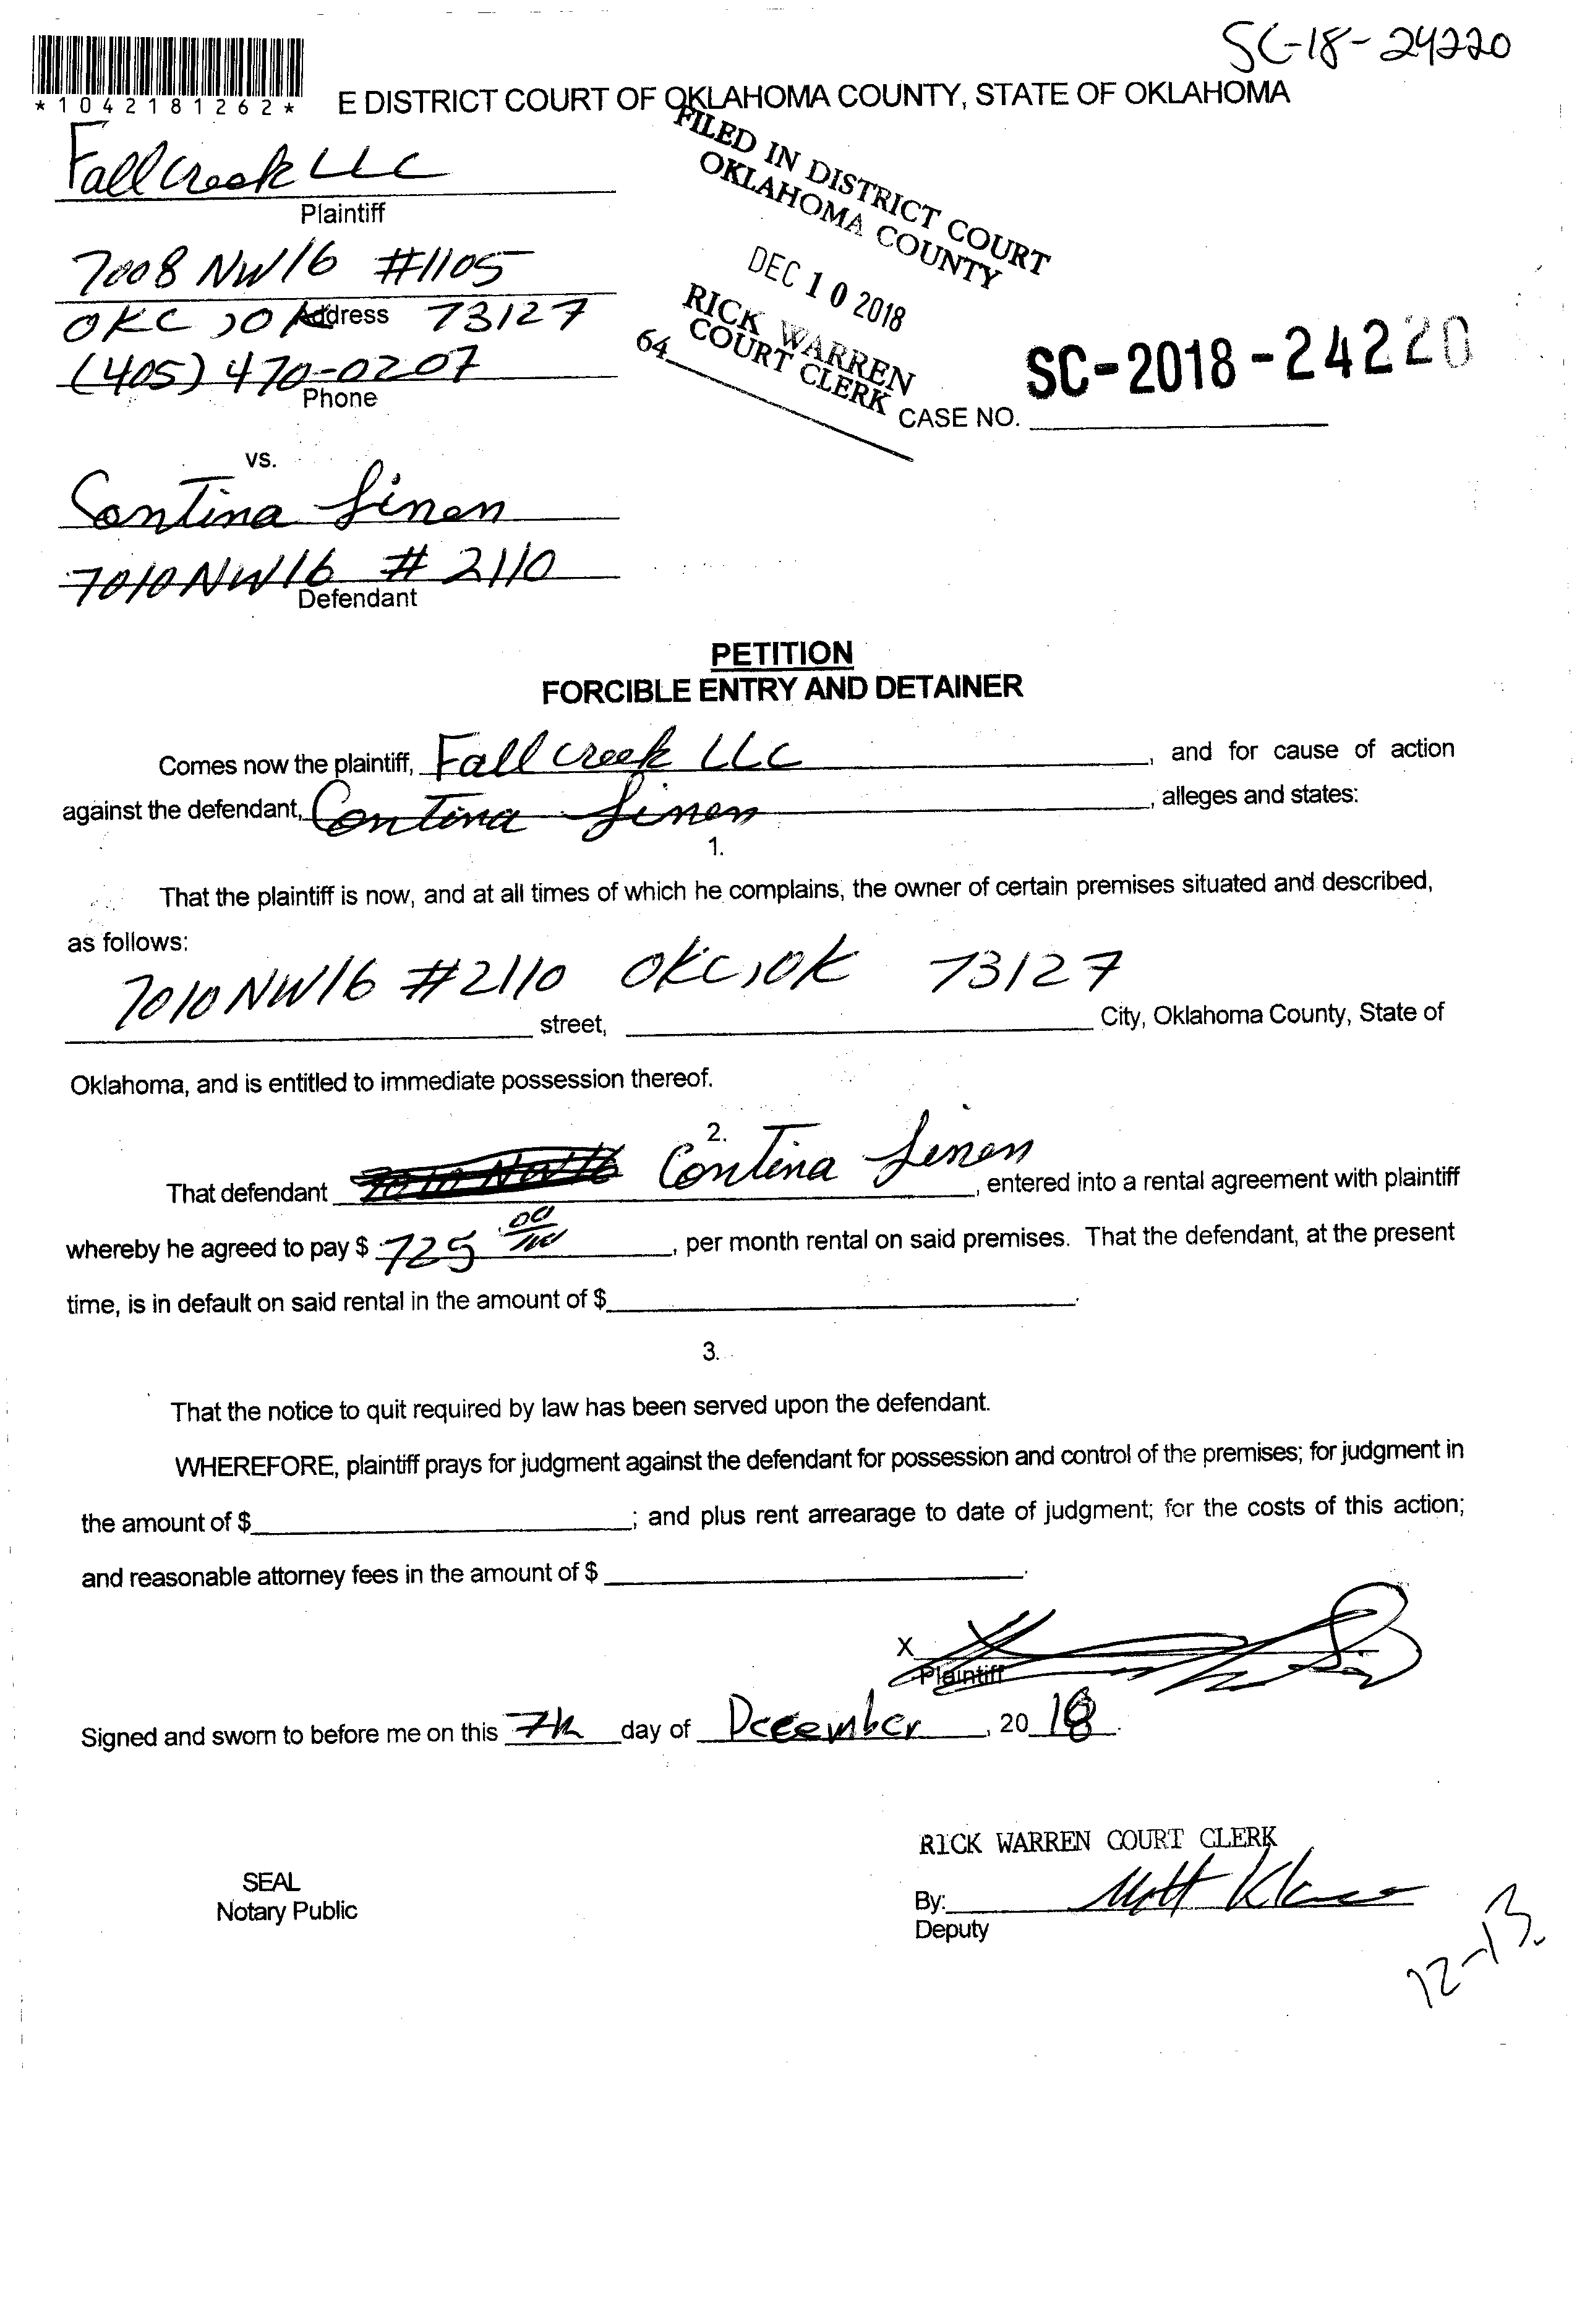 SC-18-24220
*1042181262*
E DISTRICT COURT OF OKLAHOMA COUNTY, STATE OF OKLAHOMA
FILED IN DISTRICT COURT
OKLAHOMA COUNTY
DEC 10 2018
RICK WARREN
COURT CLERK
64
Fall Creek LLC
Plaintiff
7008 NW 16 #1105
OKC, OK 73127
Address
(405) 470-0207
Phone
CASE NO. SC-2018-24220
vs.
Contina Linen
7010 NW 16 # 2110
Defendant
PETITION
FORCIBLE ENTRY AND DETAINER
Comes now the plaintiff, Fall Creek LLC, and for cause of action
against the defendant, Contina Linen, alleges and states:
1.
That the plaintiff is now, and at all times of which he complains, the owner of certain premises situated and described,
as follows:
7010 NW 16 #2110 OKC, OK 73127
street, City, Oklahoma County, State of
Oklahoma, and is entitled to immediate possession thereof.
2.
That defendant 7010 NW 16 Contina Linen, entered into a rental agreement with plaintiff
whereby he agreed to pay $ 725 00/100, per month rental on said premises. That the defendant, at the present
time, is in default on said rental in the amount of $.
3.
That the notice to quit required by law has been served upon the defendant.
WHEREFORE, plaintiff prays for judgment against the defendant for possession and control of the premises; for judgment in
the amount of $; and plus rent arrearage to date of judgment; for the costs of this action;
and reasonable attorney fees in the amount of $.
X
Plaintiff
Signed and sworn to before me on this 7th day of December, 2018.
RICK WARREN COURT CLERK
SEAL
Notary Public
By:
Deputy
12-13